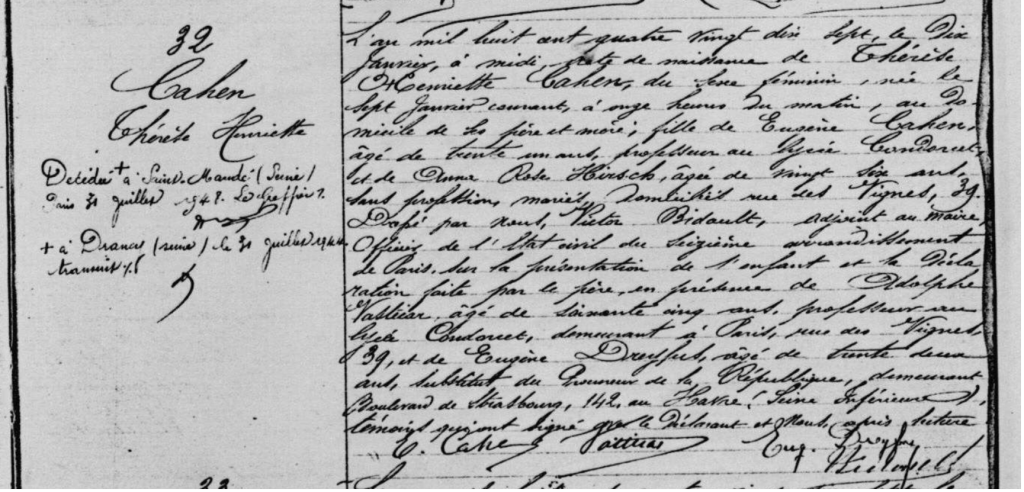 32
Cahen
Thérèse Henriette
Décédée à Saint-Mandé (Seine)
Paris 31 juillet 194 . Le Greffier.
+ à Drancy (seine) le 31 juillet 1944
transcrit
L'an mil huit cent quatre vingt dix sept, le Dix
Janvier, à midi, acte de naissance de Thérèse
Henriette Cahen, du sexe féminin, née le
sept Janvier courant, à onze heures du matin, au do-
micile de ses père et mère; fille de Eugène Cahen,
âgé de trente un ans, professeur au lycée Condorcet,
et de Anna Rose Hirsch, agée de vingt six ans,
sans profession, mariés, domiciliés rue des Vignes, 39.
Dressé par nous, Victor Bidault, adjoint au maire,
Officier de l'Etat civil du seizième arrondissement
de Paris, sur la présentation de l'enfant et la décla
ration faite par le père, en présence de Adolphe
âgé de soixante cinq ans, professeur au
lycée Condorcet, demeurant à Paris, rue des Vignes,
39, et de Eugène Dreyfus, âgé de trente deux
ans, substitut du Procureur de la République, demeurant
Boulevard de Strasbourg, 142, au Havre (Seine Inférieure),
témoins qui ont signé avec le Déclarant et Nous, après lecture
E. Cahen Eug. Dreyfus
33